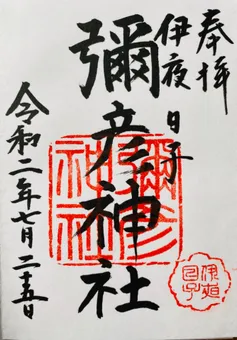 奉拝
伊夜日子
彌彦神社
令和二年七月二十五日
彌彦神社
伊夜日子